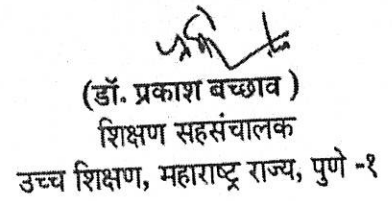 (डॉ. प्रकाश बच्छाव )
शिक्षण सहसंचालक
उच्च शिक्षण, महाराष्ट्र राज्य, पुणे -१